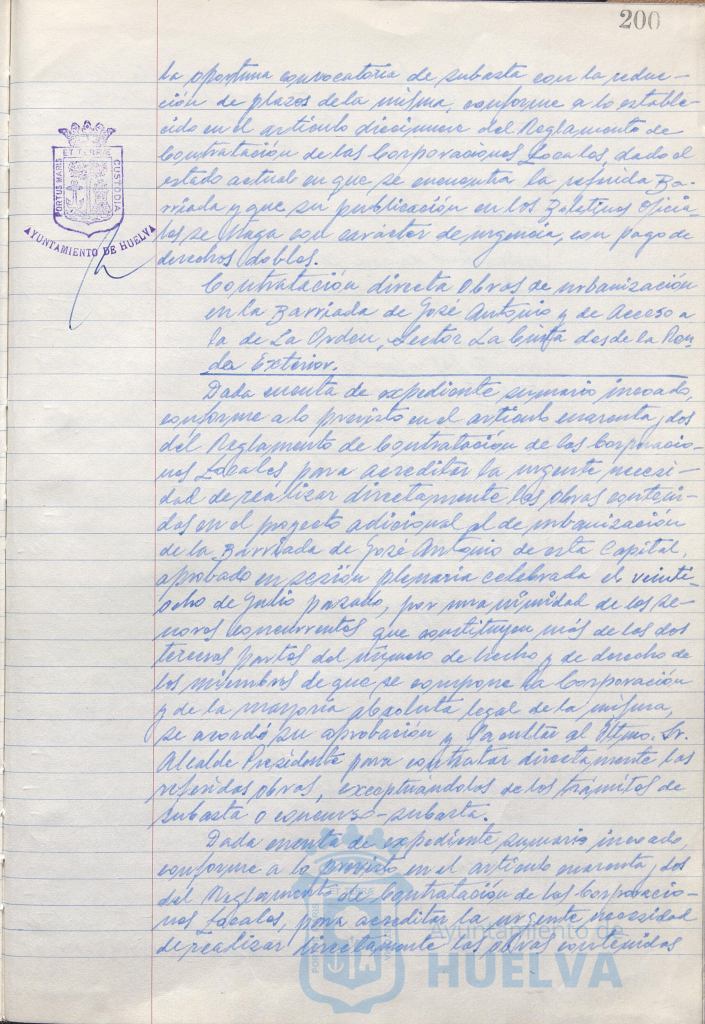 200
la oportuna convocatoria de subasta con la reduc-
ción de plazos de la misma, conforme a lo estable-
cido en el artículo diecinueve del Reglamento de
Contratación de las Corporaciones Locales, dado el
estado actual en que se encuentra la referida Ba-
rriada y que su publicación en los Boletines Oficia-
les se haga con carácter de urgencia, con pago de
derechos dobles.
PORTUS MARIS ET TERRE CUSTODIA
AYUNTAMIENTO DE HUELVA
Contratación directa Obras de urbanización
en la Barriada de José Antonio y de Acceso a
la de La Orden, Sector La Cinta desde la Ron-
da Exterior.
Dada cuenta de expediente sumario incoado,
conforme a lo previsto en el artículo cuarenta y dos
del Reglamento de Contratación de las Corporacio-
nes Locales para acreditar la urgente necesi-
dad de realizar directamente las obras conteni-
das en el proyecto adicional al de urbanización
de la Barriada de José Antonio de esta Capital,
aprobado en sesión plenaria celebrada el veinti-
ocho de Julio pasado, por unanimidad de los se-
ñores concurrentes que constituyen más de las dos
terceras partes del número de hecho y de derecho de
los miembros de que se compone la Corporación
y de la mayoría absoluta legal de la misma,
se acordó su aprobación y facultar al Iltmo. Sr.
Alcalde Presidente para contratar directamente las
referidas obras, exceptuándolas de los trámites de
subasta o concurso-subasta.
Dada cuenta de expediente sumario incoado,
conforme a lo previsto en el artículo cuarenta y dos
del Reglamento de Contratación de las Corporacio-
nes Locales, para acreditar la urgente necesidad
de realizar directamente las obras contenidas
Ayuntamiento de
HUELVA